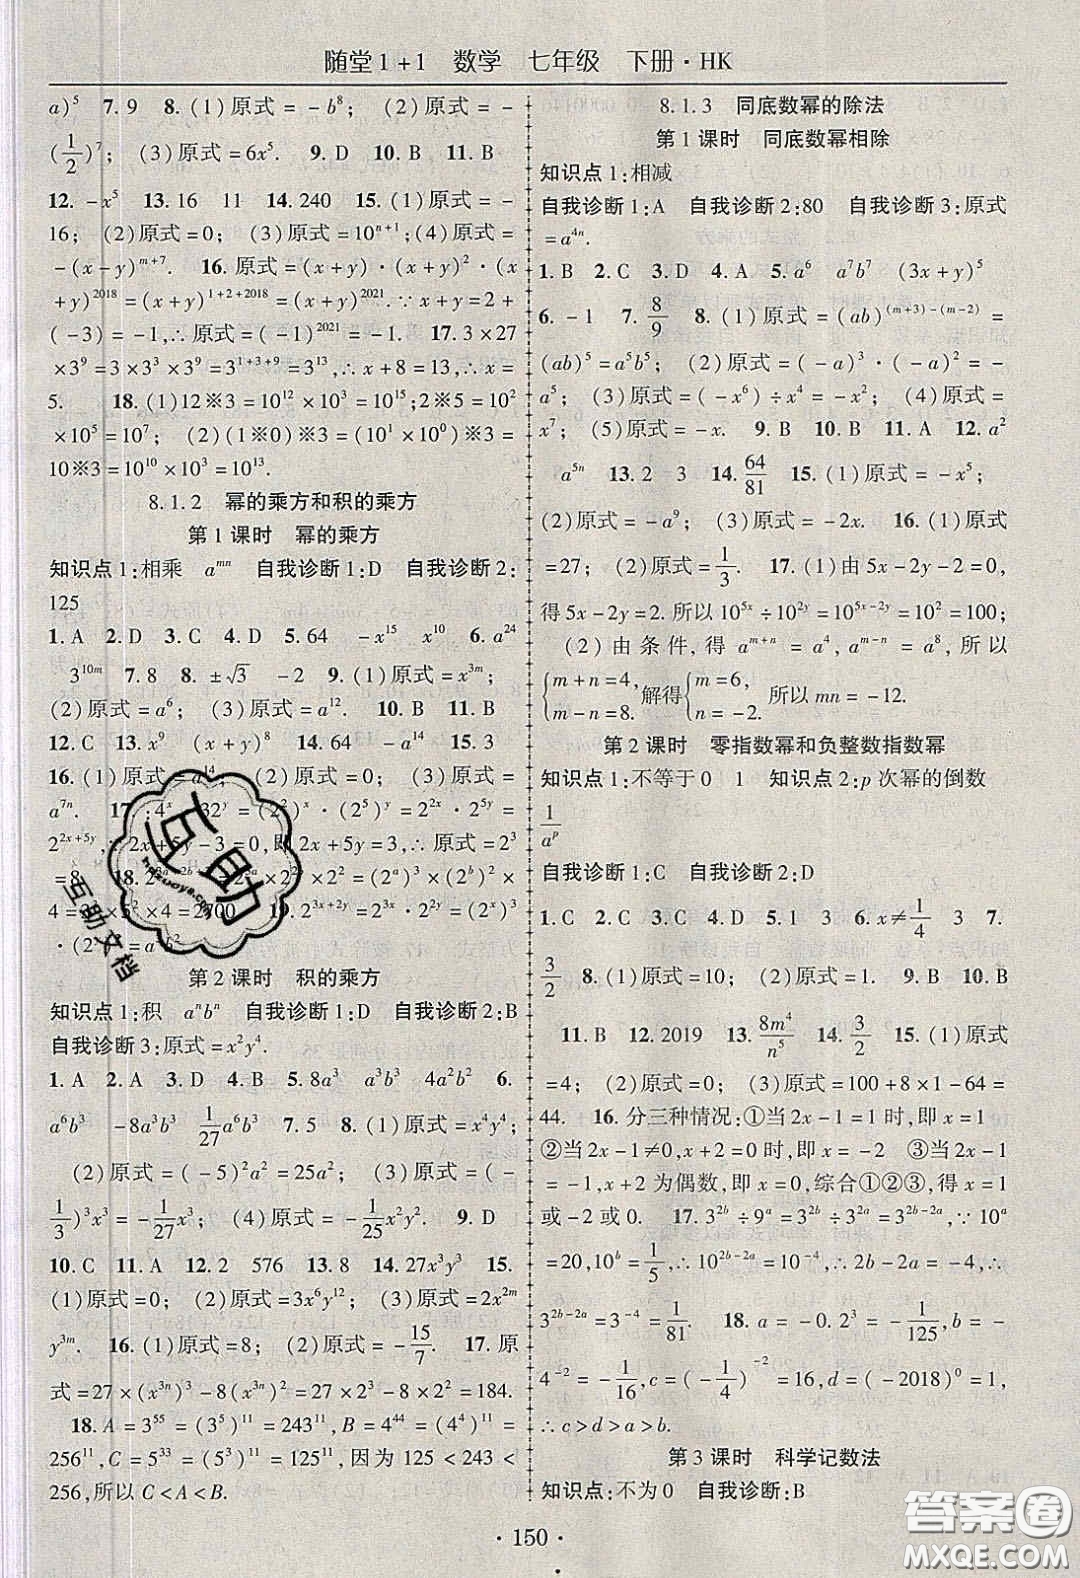 随堂1+1 数学 七年级 下册·HK
a)⁵ 7.9 8.(1)原式=-b⁸; (2)原式=
(1/2)⁷; (3)原式=6x⁵. 9.D 10.B 11.B
12.-x⁵ 13.16 11 14.240 15.(1)原式=-
16; (2)原式=0; (3)原式=10ⁿ⁺¹;(4)原式=
-(x-y)ᵐ⁺⁷. 16.原式=(x+y)·(x+y)²·(x
+y)²⁰¹⁸=(x+y)¹⁺²⁺²⁰¹⁸=(x+y)²⁰²¹.∵x+y=2+
(-3)=-1,∴原式=(-1)²⁰²¹=-1. 17.3×27
×3⁹=3×3³×3⁹=3¹⁺³⁺⁹=3¹³,∴x+8=13,∴x=
5. 18.(1)12※3=10¹²×10³=10¹⁵;2※5=10²
×10⁵=10⁷; (2)(1※0)※3=(10¹×10⁰)※3=
10※3=10¹⁰×10³=10¹³.
8.1.2 幂的乘方和积的乘方
第1课时 幂的乘方
知识点1:相乘 aᵐⁿ 自我诊断1:D 自我诊断2:
125
1.A 2.D 3.C 4.D 5.64 -x¹⁵ x¹⁰ 6.a²⁴
3¹⁰ᵐ 7.8 8.±√3 -2 9.(1)原式=x³ᵐ;
(2)原式=a⁶; (3)原式=a¹². 10.B 11.B
12.C 13.x⁹ (x+y)⁸ 14.64 -a¹⁴ 15.3
16.(1)原式=a¹⁴; (2)原式=x¹⁴; (3)原式=
a⁷ⁿ. 17. 4ˣ 32ʸ=(2²)ˣ·(2⁵)ʸ=2²ˣ·2⁵ʸ=
2²ˣ⁺⁵ʸ,∵2x+5y-3=0,即2x+5y=3,∴原式=2³
=8. 18.2 ×2ᵃ×2ᵇ×2²=(2ᵃ)³×(2ᵇ)²×
4= ×5²×4=2700 19.2³ˣ⁺²ʸ=2³ˣ·2²ʸ=(2ˣ)³
·(2ʸ)²=a³b².
第2课时 积的乘方
知识点1:积 aⁿbⁿ 自我诊断1:D 自我诊断2:B
自我诊断3:原式=x²y⁴.
1.A 2.A 3.D 4.B 5.8a³ a³b³ 4a²b⁴ 6.
a⁶b³ -8a³b³ 1/27a⁶b³ 7.5 8.(1)原式=x⁴y⁴;
(2)原式=(-5)²a²=25a²; (3)原式=(-
1/3)³x³=-1/27x³; (4)原式=-1/25x²y². 9.D
10.C 11.A 12.2 576 13.8 14.27x³y³ 15.
(1)原式=0; (2)原式=3x⁶y¹²; (3)原式=2x²ᵐ
y³ᵐ. 16.(1)原式=8; (2)原式=-15/7. 17.原
式=27×(x³ⁿ)³-8(x³ⁿ)²=27×2³-8×2²=184.
18.A=3⁵⁵=(3⁵)¹¹=243¹¹,B=4⁴⁴=(4⁴)¹¹=
256¹¹,C=5³³=(5³)¹¹=125¹¹,因为125<243<
256,所以C<A<B.
8.1.3 同底数幂的除法
第1课时 同底数幂相除
知识点1:相减
自我诊断1:A 自我诊断2:80 自我诊断3:原式
=a⁴ⁿ.
1.B 2.C 3.D 4.A 5.a⁶ a⁷b⁷ (3x+y)⁵
6.-1 7.8/9 8.(1)原式=(ab)⁽ᵐ⁺³⁾⁻⁽ᵐ⁻²⁾=
(ab)⁵=a⁵b⁵; (2)原式=(-a)³·(-a)²=
-a⁵; (3)原式=(-x⁶)÷x⁴=-x²; (4)原式=
x⁷; (5)原式=-x. 9.B 10.B 11.A 12.a²
a⁵ⁿ 13.2 3 14.64/81 15.(1)原式=-x⁵;
(2)原式=-a⁹; (3)原式=-2x. 16.(1)原式
=27; (2)原式=1/3. 17.(1)由5x-2y-2=0,
得5x-2y=2.所以10⁵ˣ÷10²ʸ=10⁵ˣ⁻²ʸ=10²=100;
(2)由条件,得aᵐ⁺ⁿ=a⁴,aᵐ⁻ⁿ=a⁸,所以
{m+n=4, m-n=8. 解得{m=6, n=-2. 所以mn=-12.
第2课时 零指数幂和负整数指数幂
知识点1:不等于0 1 知识点2:p次幂的倒数
1/aᵖ
自我诊断1:C 自我诊断2:D
1.C 2.C 3.C 4.D 5.1 3 6.x≠1/4 3 7.
3/2 8.(1)原式=10; (2)原式=1. 9.B 10.B
11.B 12.2019 13.8m⁴/n⁵ 14.3/2 15.(1)原式
=4; (2)原式=0; (3)原式=100+8×1-64=
44. 16.分三种情况:①当2x-1=1时,即x=1
②当2x-1≠0,x+2=0时,即x=-2 ③当2x-1
=-1,x+2为偶数,即x=0,综合①②③,得x=1
或-2或0. 17.3²ᵇ÷9ᵃ=3²ᵇ÷3²ᵃ=3²ᵇ⁻²ᵃ,∵10ᵃ
=20,10ᵇ=1/5,∴10²ᵇ⁻²ᵃ=10⁻⁴,∴2b-2a=-4,∴
3²ᵇ⁻²ᵃ=3⁻⁴=1/81. 18.a=-0.2³=-1/125,b=-
4⁻²=-1/16,c=(-1/4)⁻²=16,d=(-2018)⁰=1,
∴c>d>a>b.
第3课时 科学记数法
知识点:不为0 自我诊断:B
·150·
互助
互助文档
答案圈
MXQE.COM